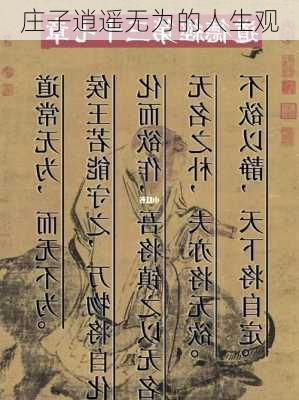 庄子逍遥无为的人生观
道德经第三十七章
道常无为，而无不为。
侯王若能守之，万物将自化
化而欲作，吾将镇之以无名
无名之朴，夫亦将无欲。
不欲以静，天下将自定。
小红书